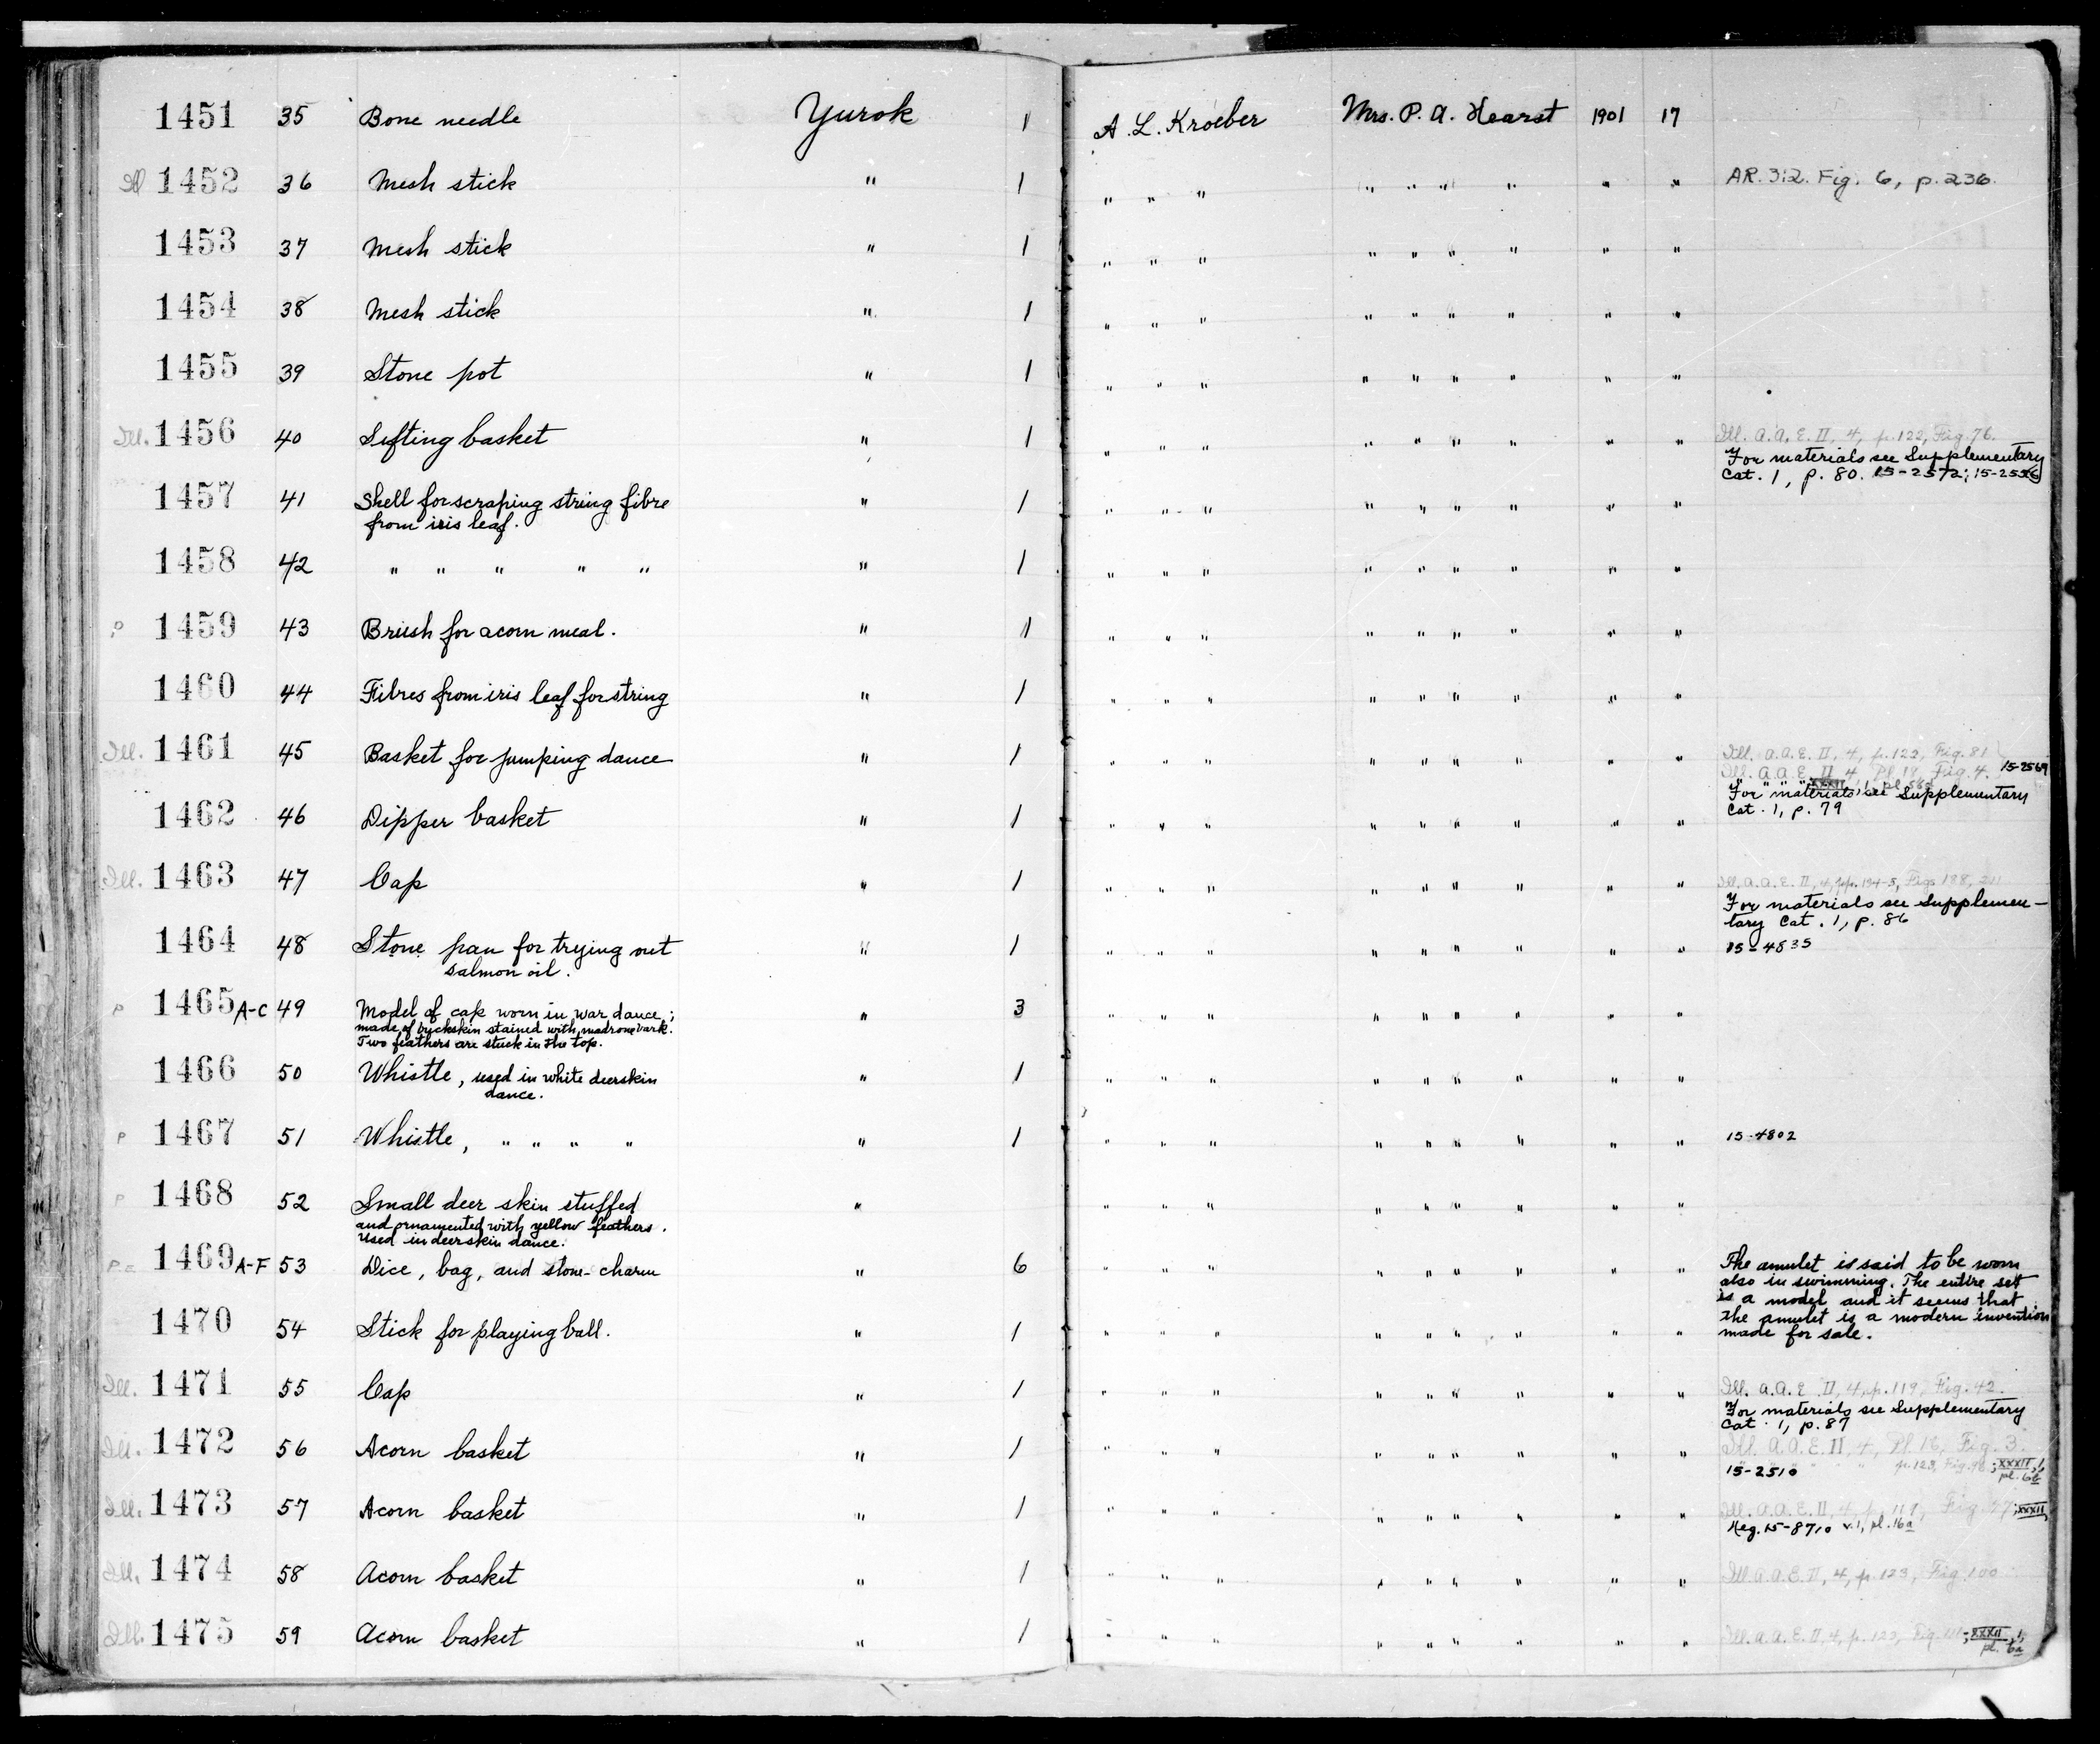 1451 35 Bone needle Yurok 1 A. L. Kroeber Mrs. P. A. Hearst 1901 17
Ill 1452 36 Mesh stick " 1 " " " " " " " " " AR. 3:2. Fig. 6, p. 236.
1453 37 Mesh stick " 1 " " " " " " " " "
1454 38 Mesh stick " 1 " " " " " " " " "
1455 39 Stone pot " 1 " " " " " " " " "
Ill. 1456 40 Sifting basket " 1 " " " " " " " " " Ill. A.A.E. II, 4, p. 122, Fig. 76.
For materials see Supplementary
Cat. 1, p. 80. 15-2572;
1457 41 Shell for scraping string fibre " 1 " " " " " " " " "
from iris leaf.
1458 42 " " " " " " 1 " " " " " " " " "
P 1459 43 Brush for acorn meal. " 1 " " " " " " " " "
1460 44 Fibres from iris leaf for string " 1 " " " " " " " " "
Ill. 1461 45 Basket for jumping dance " 1 " " " " " " " " " Ill. A.A.E. II, 4, p. 122, Fig. 81
Ill. A.A.E. II 4, Pl. 18, Fig. 4. 15-2569
" " " " XXXII, 1, pl.
For materials, see Supplementary
Cat. 1, p. 79
1462 46 Dipper basket " 1 " " " " " " " " "
Ill. 1463 47 Cap " 1 " " " " " " " " " Ill. A.A.E. II, 4, pp. 134-5, Figs 188,
For materials see Supplemen-
tary Cat. 1, p. 86
1464 48 Stone pan for trying out " 1 " " " " " " " " " 15-4835
salmon oil.
P 1465 A-C 49 Model of cap worn in war dance; " 3 " " " " " " " " "
made of buckskin stained with madrone bark.
Two feathers are stuck in the top.
1466 50 Whistle, used in white deerskin " 1 " " " " " " " " "
dance.
P 1467 51 Whistle, " " " " " 1 " " " " " " " " " 15-4802
P 1468 52 Small deer skin stuffed " " " " " " " " " "
and ornamented with yellow feathers.
Used in deerskin dance.
P 1469 A-F 53 Dice, bag, and stone-charm " 6 " " " " " " " " " The amulet is said to be worn
also in swimming. The entire set
is a model and it seems that
the amulet is a modern invention
made for sale.
1470 54 Stick for playing ball. " 1 " " " " " " " " "
Ill. 1471 55 Cap " 1 " " " " " " " " " Ill. A.A.E. II, 4, p. 119, Fig. 42.
For materials see Supplementary
Cat. 1, p. 87
Ill. 1472 56 Acorn basket " 1 " " " " " " " " " Ill. A.A.E. II, 4, Pl. 16, Fig. 3.
15-2510 " " " p. 123, Fig. ; XXXII, 1,
pl. 6b
Ill. 1473 57 Acorn basket " 1 " " " " " " " " " Ill. A.A.E. II, 4, p. 119, Fig. 47; XXXII,
Neg. 15-8710 v. 1, pl. 16a
Ill. 1474 58 Acorn basket " 1 " " " " " " " " " Ill. A.A.E. II, 4, p. 123, Fig. 100
Ill. 1475 59 Acorn basket " 1 " " " " " " " " " Ill. A.A.E. II, 4, p. 123, Fig. ; XXXII, 1,
pl. 6a